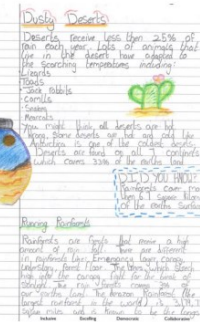 Dusty Deserts
Deserts receive less then 25% of
rain each year. Lots of animals that
live in the desert have adapted to
the scorching temperatures including:
Lizards
Toads
Jack rabbits
Camills
Snakes
Meercats
You might think all deserts are hot
wrong. Some deserts are not and cold like
Antarctica is one of the coldest deserts.
Deserts are found on all 7 continents
which covers 33% of the earths land
DID YOU KNOW?
Rainforests
of the earths surface
Running Rainforests
Rainforests are forests that receive a high
amount of rain fall. There are different
in rainforests like; Emergency layer, canopy,
understory, forest floor.
sunlight. The rain forests covers 3% of
our earths land. The Amazon Rainforest
largest rainforest in the world
Inclusive Excelling Democratic Collaborative